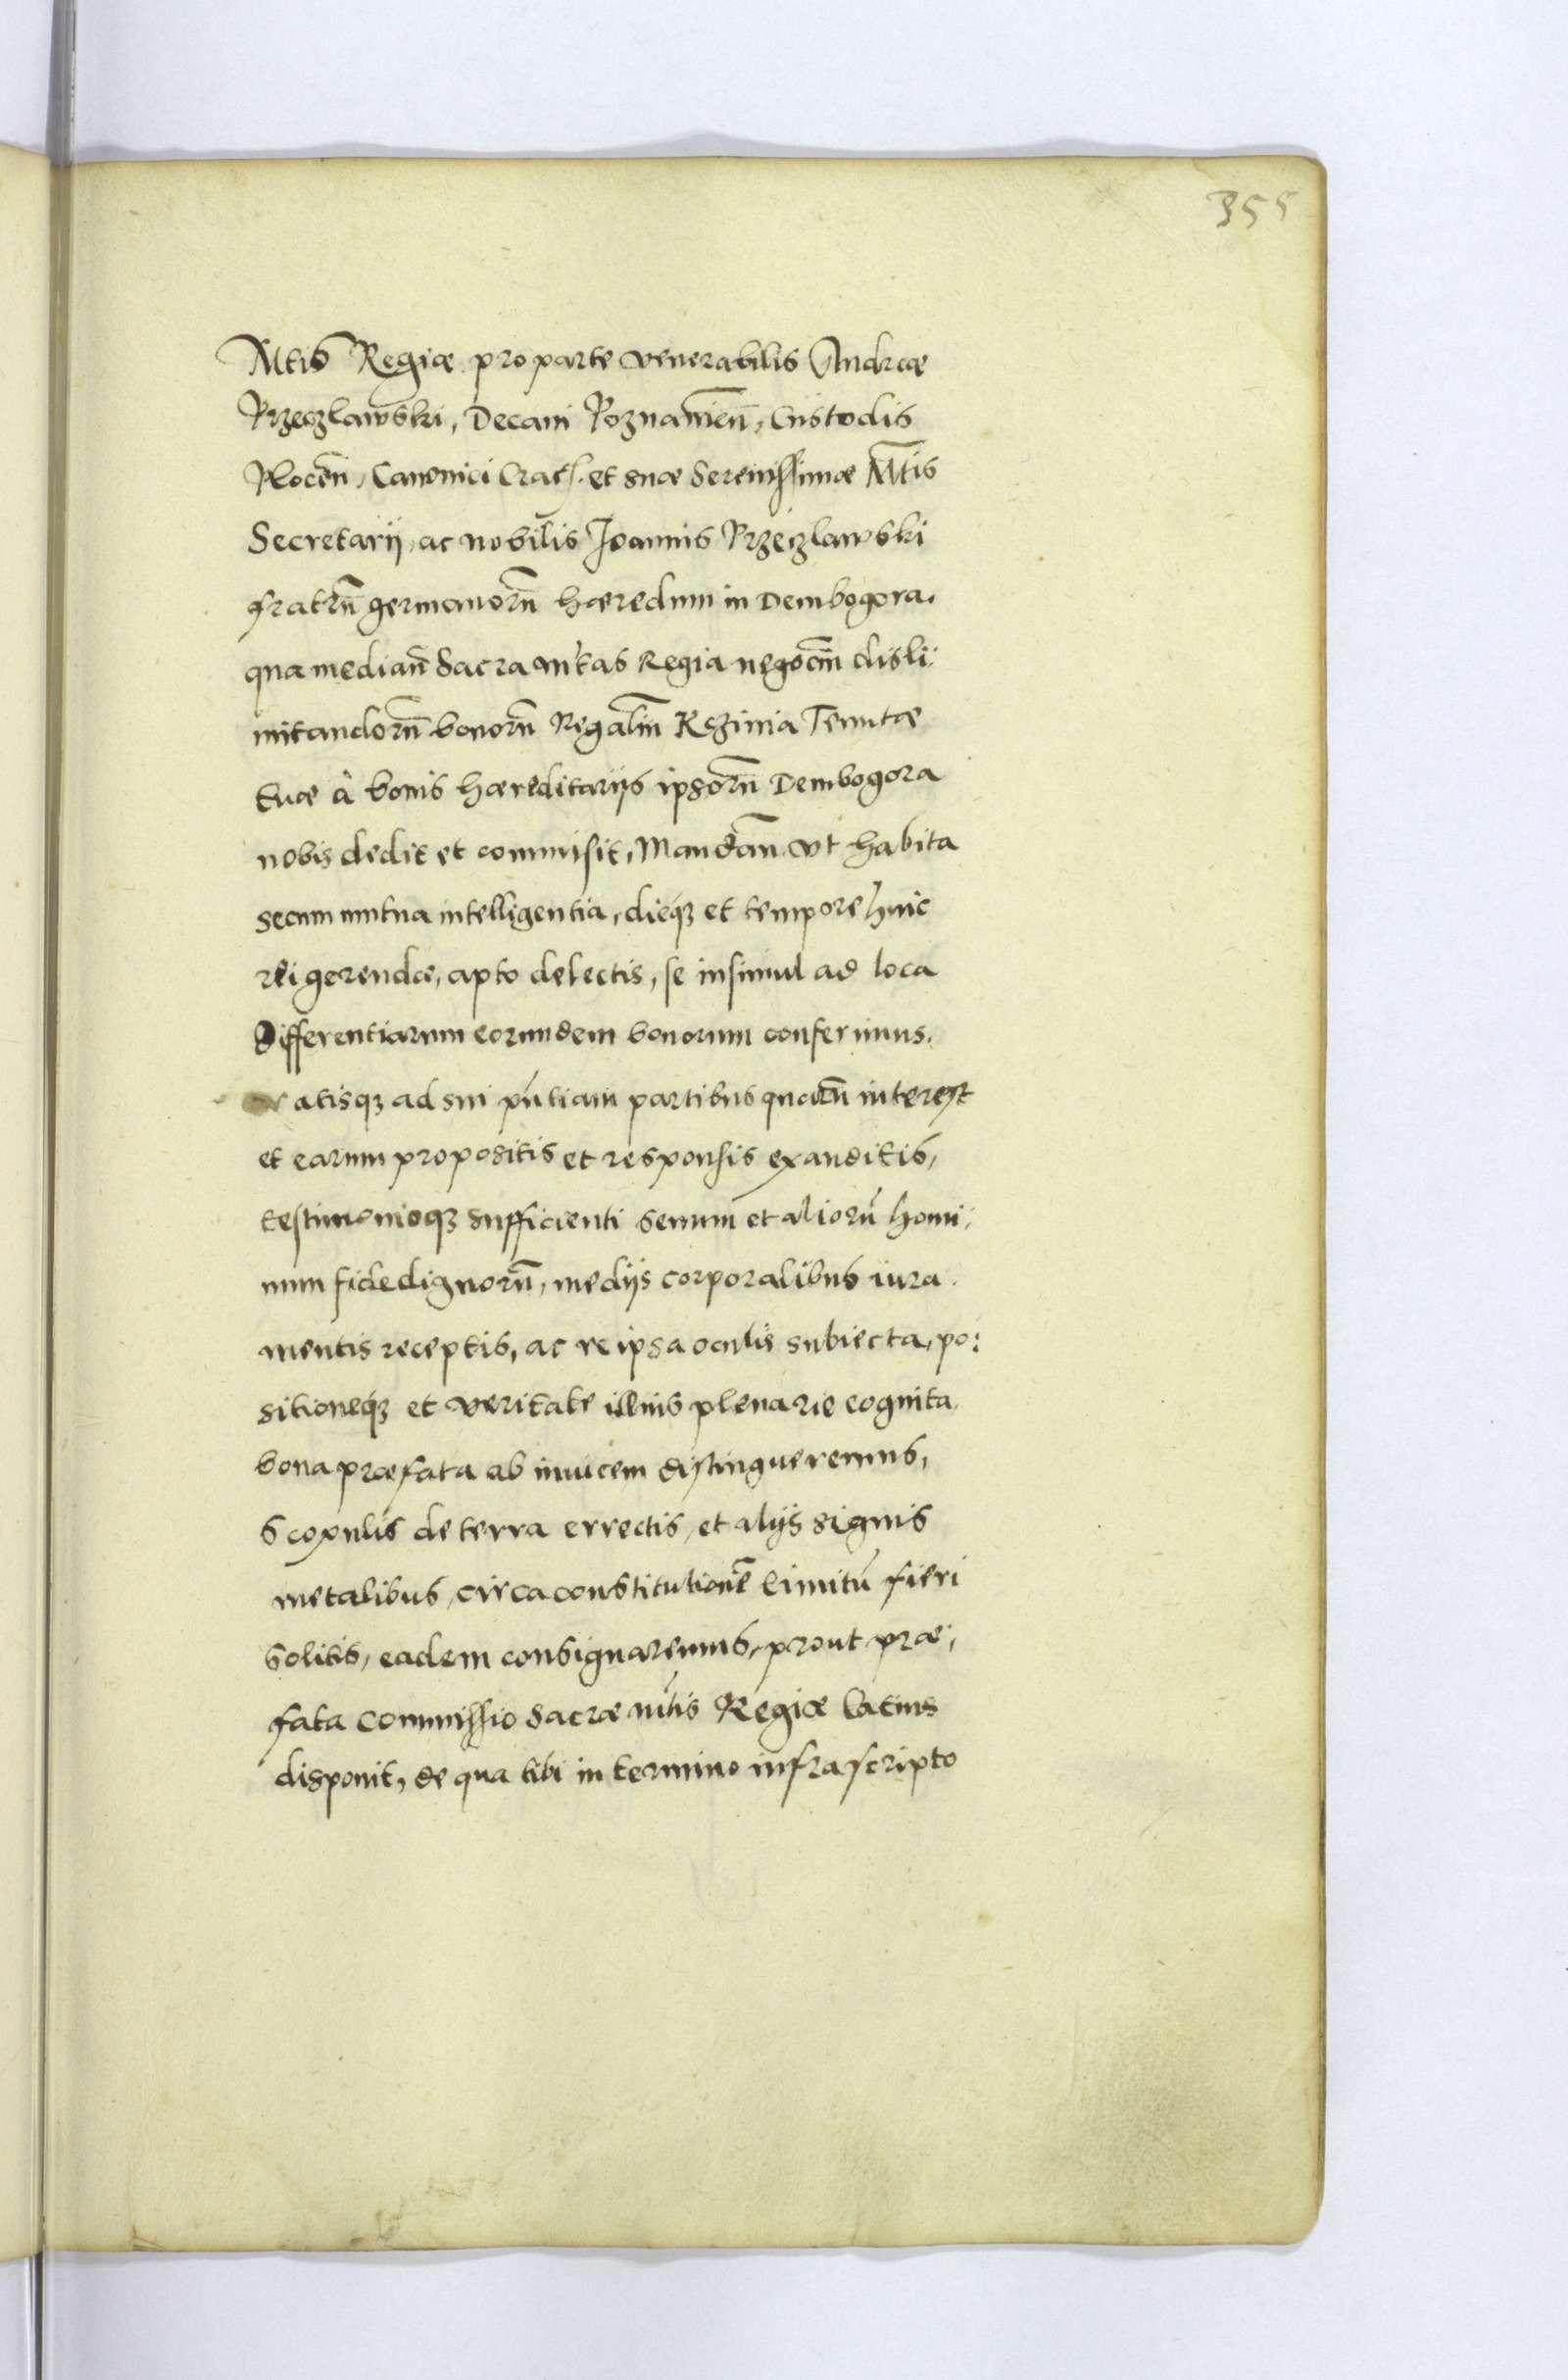 355
Mtis Regiæ pro parte venerabilis Andreæ
Przeczlawski, Decani Poznaniен̃, Custodis
Plocen̄, Canonici Crac̄. et suæ Serenissimæ Mtis
Secretarij, ac nobilis Ioannis Przeczlawski
fratrū germanorū hæredum in Dembogora.
qua median̄ Sacra mtas Regia negociū disli:
mitandorū bonorū Regaliū Kcziniа Tenutæ
tuæ â bonis hæreditarijs ipsorū Dembogora
nobis dedit et commisit, Mandan̄ vt habita
secum mutua intelligentia, dieq3 et tempore huic
rei gerendæ, apto delectis, se insimul ad loca
differentiarum eorundem bonorum conferimus.
atisq3 ad sui pūtiam partibus quarū interest
et earum propositis et responsis exauditis,
testimonioq3 sufficienti senum et aliorū homi:
num fidedignorū, medijs corporalibus iura
mentis receptis, ac re ipsa oculis subiecta, po:
sitioneq3 et veritate illius plenarie cognita,
bona præfata ab inuicem distingueremus,
scopulis de terra errectis, et alijs signis
metalibus, circa constitutionē limitū fieri
solitis, eadem consignaremus, prout præ:
fata Commissio Sacræ mtis Regiæ latius
disponit, de qua tibi in termino infrascripto